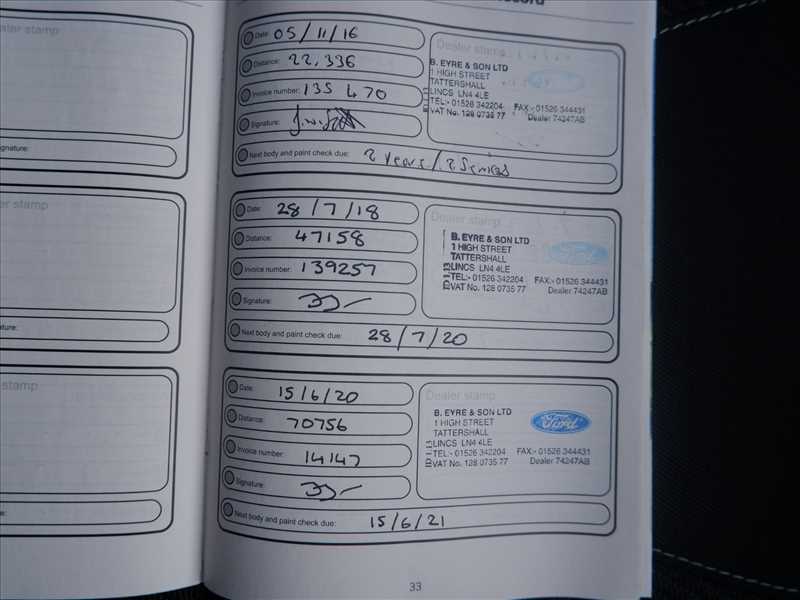 ealer stamp
ignature:
er stamp
ature:
stamp
e:
ecord
Date: 05/11/16
Distance: 22,336
Invoice number: 135470
Signature:
Next body and paint check due: 2 years / 2 Services
Dealer stamp
B. EYRE & SON LTD
1 HIGH STREET
TATTERSHALL
LINCS LN4 4LE
TEL:- 01526 342204 FAX:- 01526 344431
VAT No. 128 0735 77 Dealer 74247AB
Date: 28/7/18
Distance: 47158
Invoice number: 139257
Signature:
Next body and paint check due: 28/7/20
Dealer stamp
B. EYRE & SON LTD
1 HIGH STREET
TATTERSHALL
LINCS LN4 4LE
TEL:- 01526 342204 FAX:- 01526 344431
VAT No. 128 0735 77 Dealer 74247AB
Date: 15/6/20
Distance: 70756
Invoice number: 14147
Signature:
Next body and paint check due: 15/6/21
Dealer stamp
B. EYRE & SON LTD
1 HIGH STREET
TATTERSHALL
LINCS LN4 4LE
TEL:- 01526 342204 FAX:- 01526 344431
VAT No. 128 0735 77 Dealer 74247AB
Ford
33